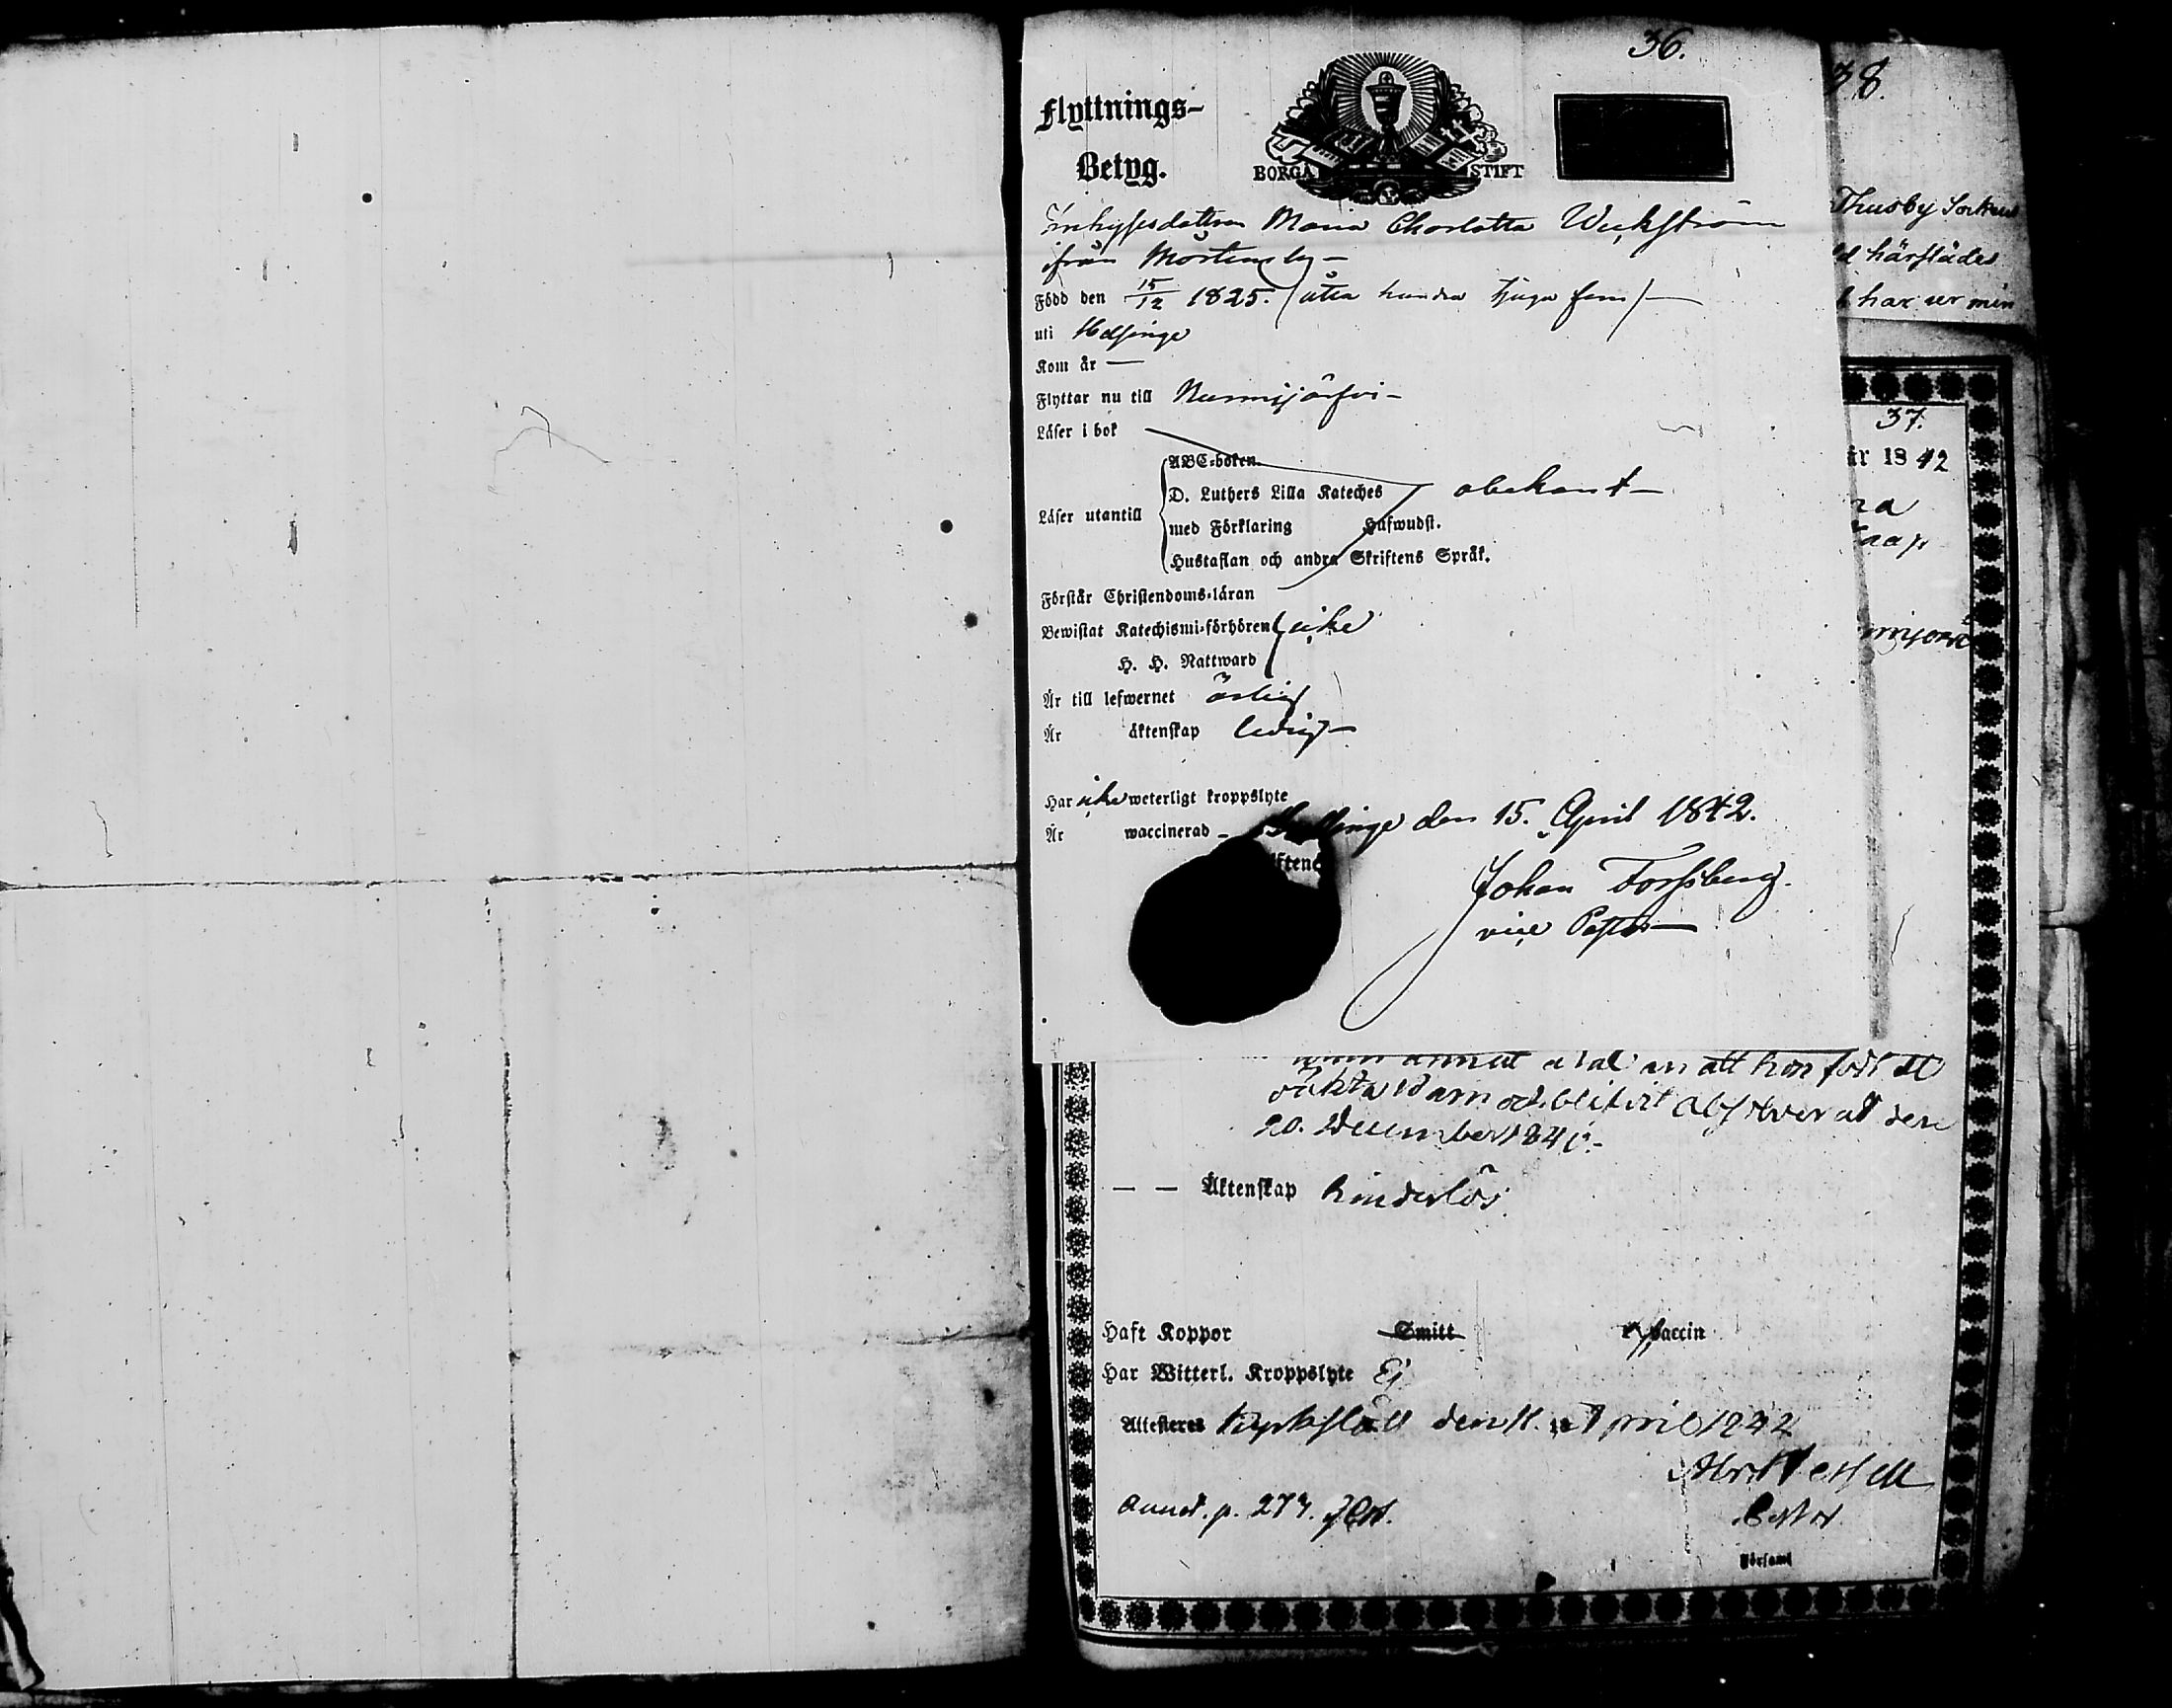 36.
Flyttnings-
Betyg.
BORGÅ STIFT
Inhysesdottren Maria Charlotta Weckström
ifrån Mårtensby -
Född den 15/12 1825. (åtta hundra tjugu fem) -
uti Helsinge
Kom år -
Flyttar nu till Nurmijärfvi -
Läser i bok
Läser utantill
ABC-boken.
D. Luthers Lilla Kateches
obekant -
med Förklaring Hufwudst.
Hustaflan och andra Skriftens Språk.
Förstår Christendoms-läran
Bewistat Katechismi-förhören
icke
H. H. Nattward
Är till lefwernet ärlig
Är äktenskap ledig -
Har icke weterligt kroppslyte
Är waccinerad - Helsinge den 15. April 1842.
Johan Forssberg.
vice Pastor
38.
Thusby Socken
härstädes
har ur min
37.
år 1842
annat än att hon födt et
oäkta barn och blifvit absolverad den
20. December 1841.-
— — Äktenskap hinderlös.
Haft Koppor Smitt Vaccin
Har Witterl. Kroppslyte Ej
Attesteres Kyrkslätt den 11. April 1842
Annot. p. 273.
Församl